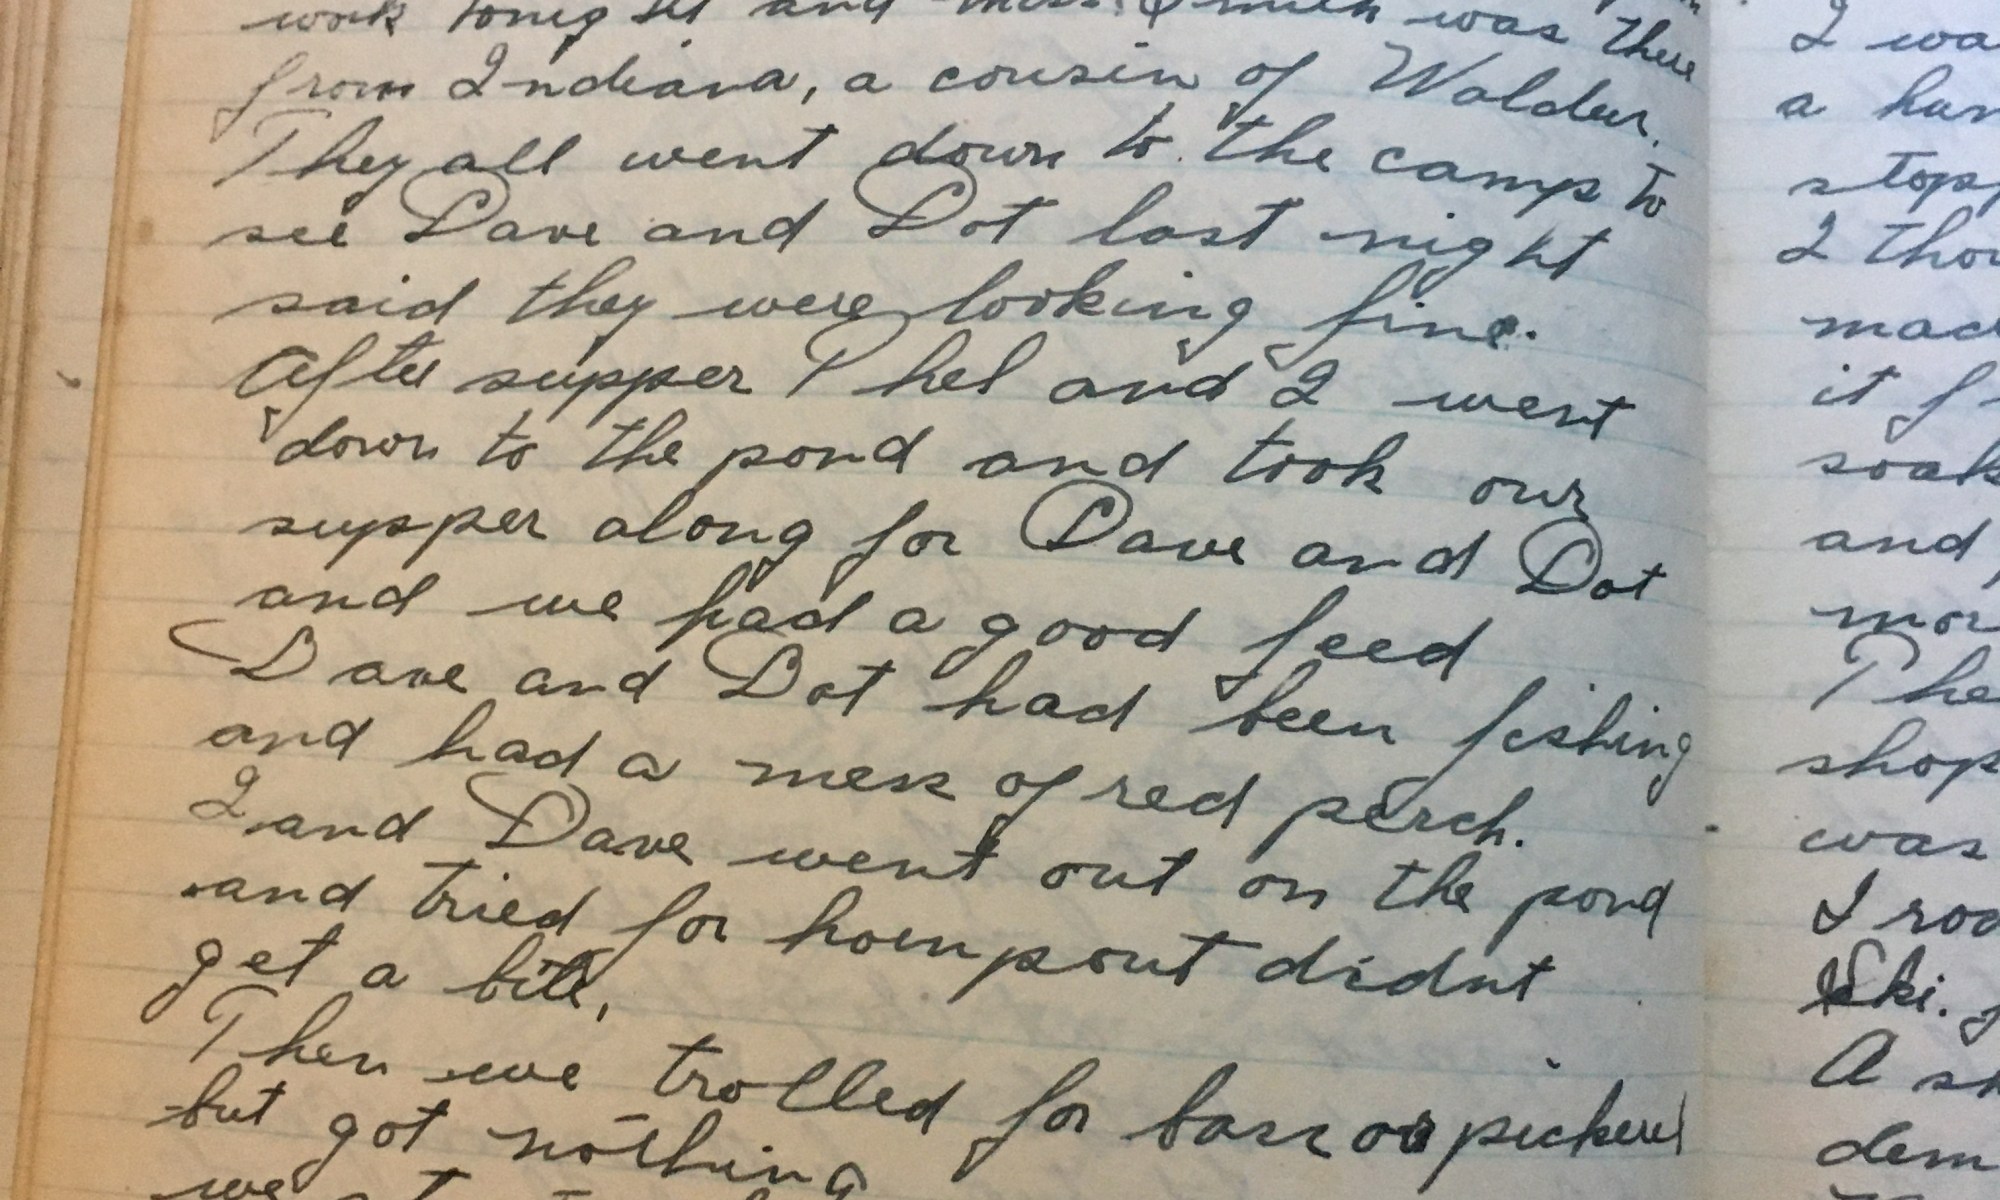 work tonight and Miss. Smith was there
from Indiana, a cousin of
They all went down to the camp to
see Dave and Dot last night
said they were looking fine.
After supper Phel and I went
down to the pond and took our
supper along for Dave and Dot
and we had a good feed
Dave and Dot had been fishing
and had a mess of red perch.
I and Dave went out on the pond
and tried for hornpout didnt
get a bite,
Then we trolled for bass or pickerel
but got nothing
we
I wa
a hun
stopp
I thou
mad
it f
soak
and
mor
The
shop
was
I roo
Ski.
A sh
dem